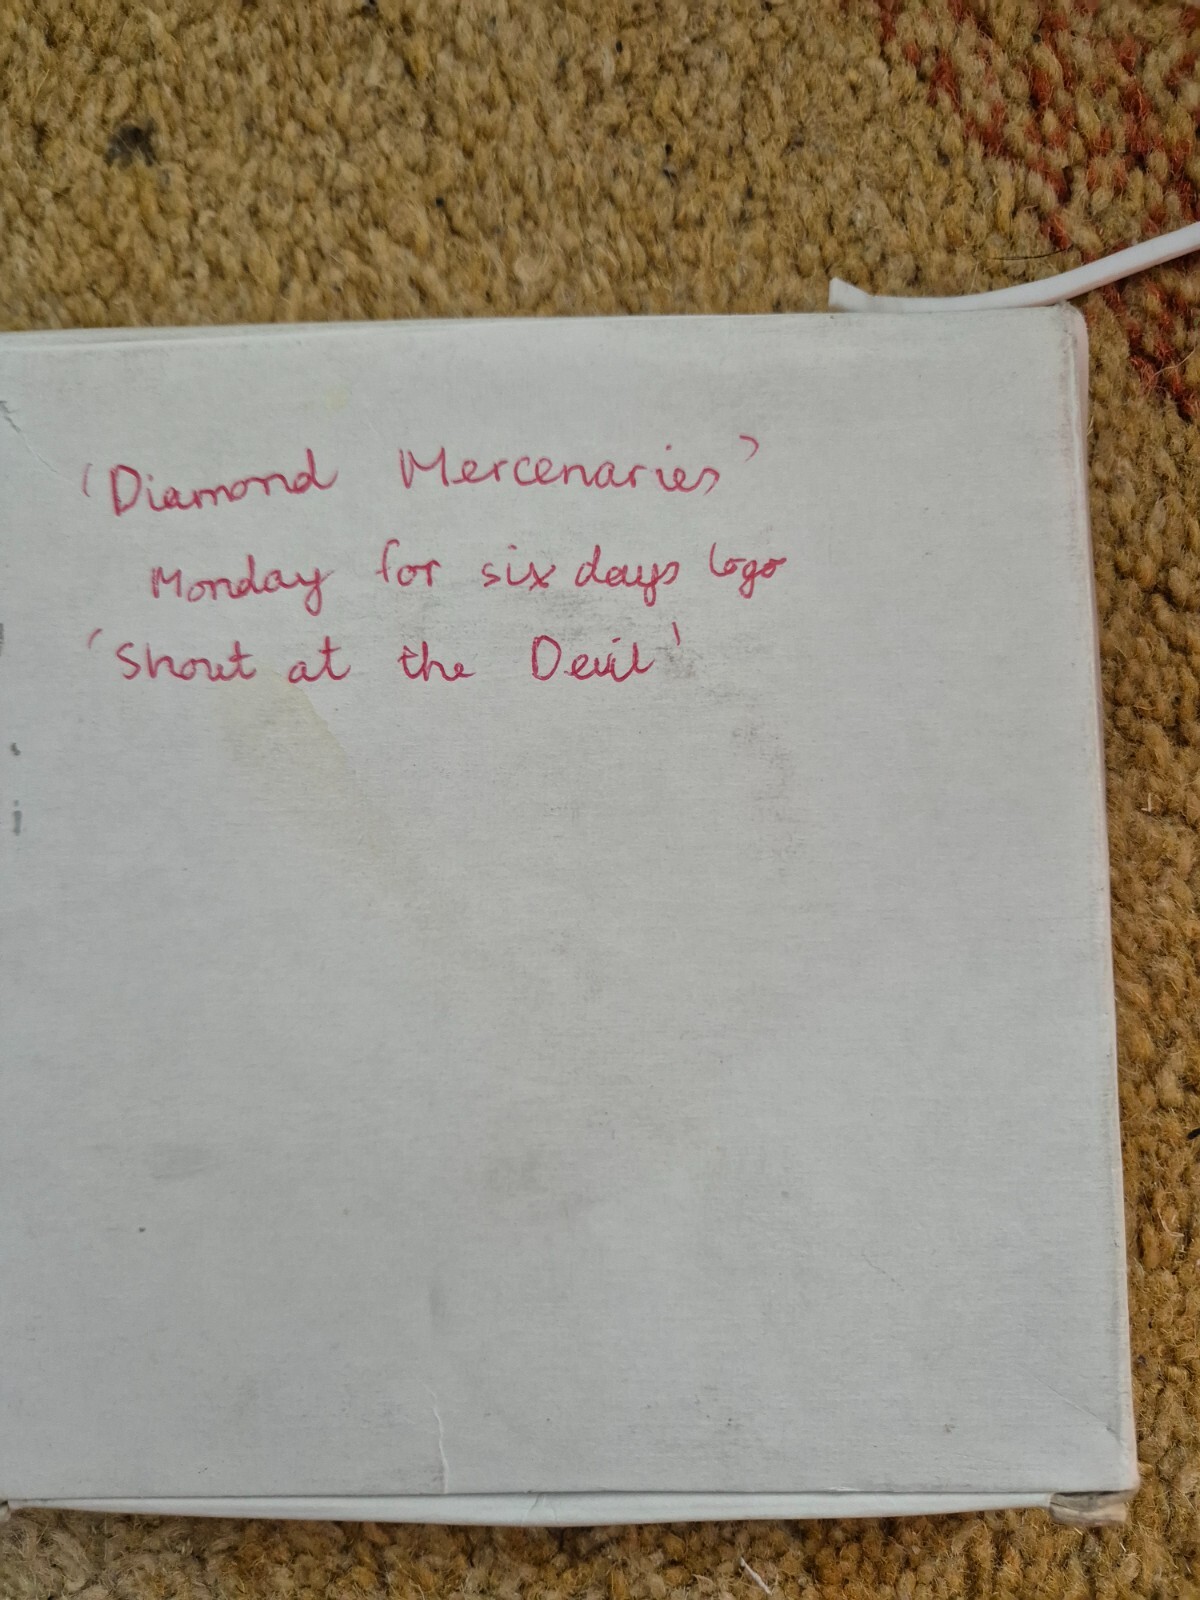 'Diamond Mercenaries'
Monday for six days logo
'Shout at the Devil'